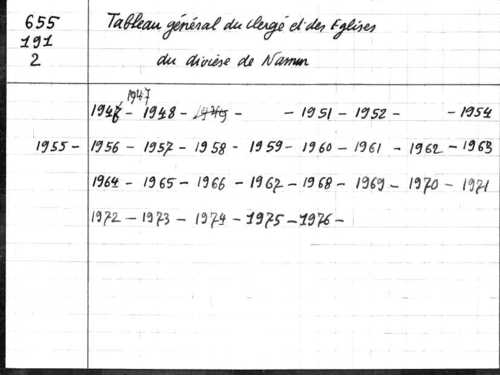 655 Tableau général du clergé et des Eglises
191
2 du diocèse de Namur
1947
1947 - 1948 - - - 1951 - 1952 - - 1954
1955 - 1956 - 1957 - 1958 - 1959 - 1960 - 1961 - 1962 - 1963
1964 - 1965 - 1966 - 1967 - 1968 - 1969 - 1970 - 1971
1972 - 1973 - 1974 - 1975 - 1976 -